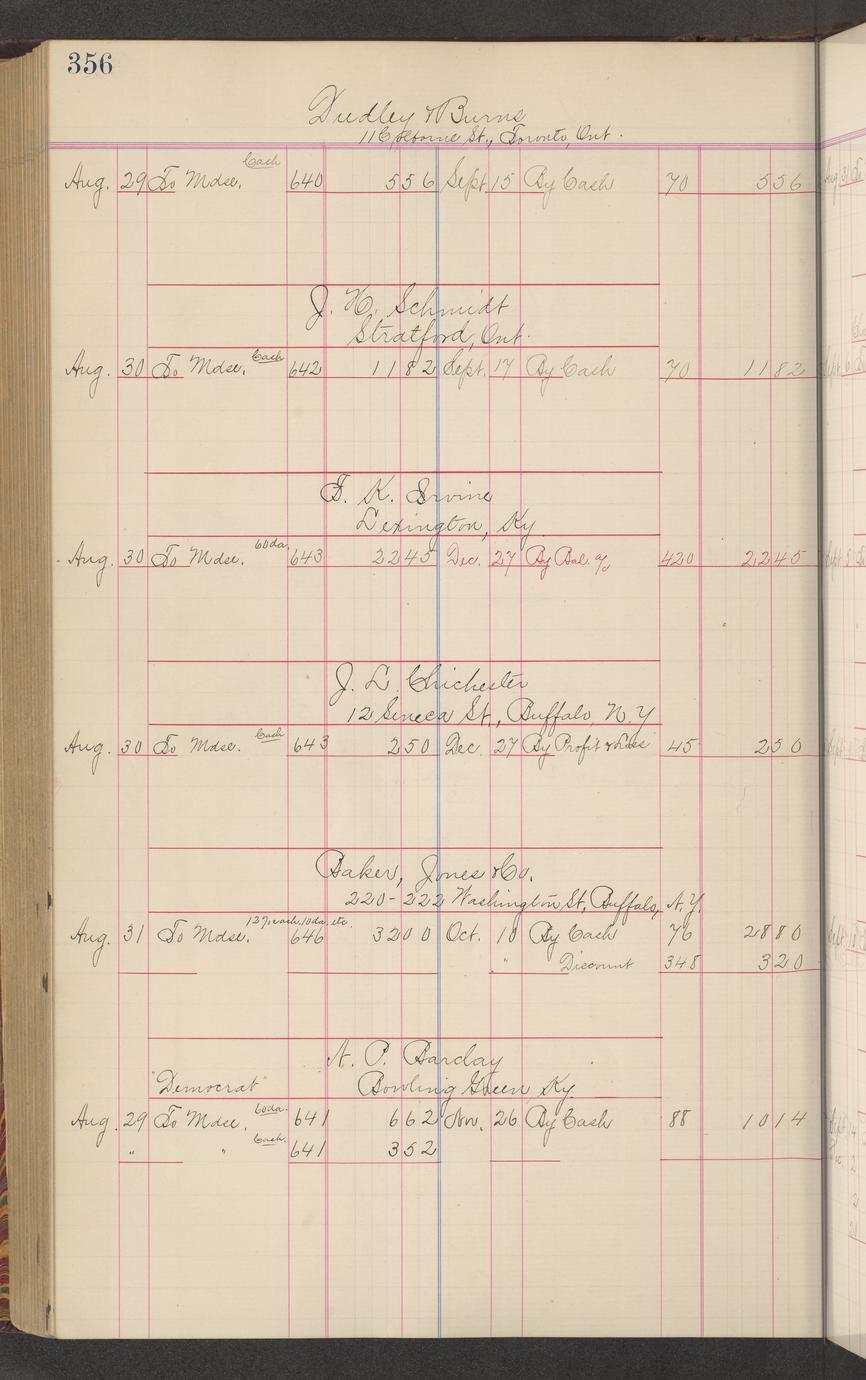 356
Dudley & Burns
11 Colborne St., Toronto, Ont.
Cash
Aug. 29 To Mdse. 640 5 56 Sept. 15 By Cash 70 5 56
J. H. Schmidt
Stratford, Ont.
Cash
Aug. 30 To Mdse. 642 11 82 Sept. 17 By Cash 70 11 82
F. K. Irvine
Lexington, Ky
60 da.
Aug. 30 To Mdse. 643 22 45 Dec. 27 By Bal. a/c 420 22 45
J. L. Chichester
12 Seneca St., Buffalo, N.Y
Cash
Aug. 30 To Mdse. 643 2 50 Dec. 27 By Profit & Loss 45 2 50
Baker, Jones & Co.
220-222 Washington St, Buffalo, N.Y.
12% cash, 10 da, etc.
Aug. 31 To Mdse. 646 32 00 Oct. 10 By Cash 76 28 80
" Discount 348 3 20
A. P. Barclay
"Democrat" Bowling Green Ky.
60 da.
Aug. 29 To Mdse. 641 6 62 Nov. 26 By Cash 88 10 14
" " Cash. 641 3 52